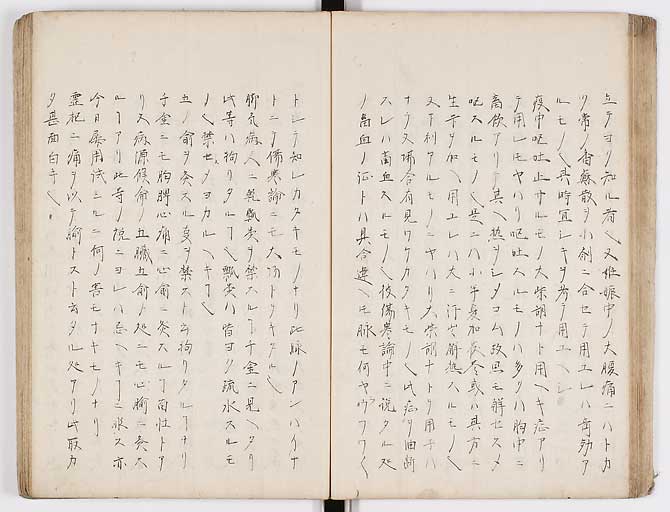 立テヨリ知ル者也又妊娠中ノ大腹痛ニハトカ
ク常ノ香蘇散ヲ小剤ニ合セテ用ユレハ奇効ア
ルモノ也其時宜シキヲ考テ用ユヘシ
疫中呕吐止サルモノ大柴胡ナト用ヘキ症アリ
テ用レモヤハリ呕吐スルモノハ多クハ胸中ニ
畜飲アリテ其ヘ熱ヲシタコム故思モ解セスメ
呕スルモノ也是ニハ小半夏加茯苓或ハ其方ニ
生芋ヲ加ヘ用ユレハ大ニ汗出解熱スルモノ也
又下利タルモノニヤハリ大柴胡ナトヲ用子ハ
ナラヌ場合有見ワケカタキモノ也此症ヲ油断
スレハ畜血スルモノ也後傷寒論中ニ説タル処
ノ畜血ノ証トハ具合違ヘモ脉モ何ヤウワワク
トシテ知レカタキモノナリ此脉ノアンハイナ
トニテ傷寒論ニモ大切トタタル也
脚気病人ニ乾瓢炎ヲ禁スルコ千金ニ見ヘタリ
此等ハ拘リタルコ也瓢炎ハ皆ヨク疏水スルモ
ノ也禁セメヨカルヘキコ也
五ノ兪ヲ灸スル変ヲ禁スト云拘リタルコナリ
千金ニモ胸脾心痛ニ心兪ニ灸スルコ有性トア
リ又病源候論ノ五臓五兪ノ処ニモ心腧ニ灸ス
ルコアリ此等ノ説ニヨレハ忌ヘキコニ非ス亦
今日屡用試ミルニ何ノ害モナキモノナリ
霊枢ニ痛ヲ以テ腧トスト云タル処アリ此取カ
タ甚面白キ也